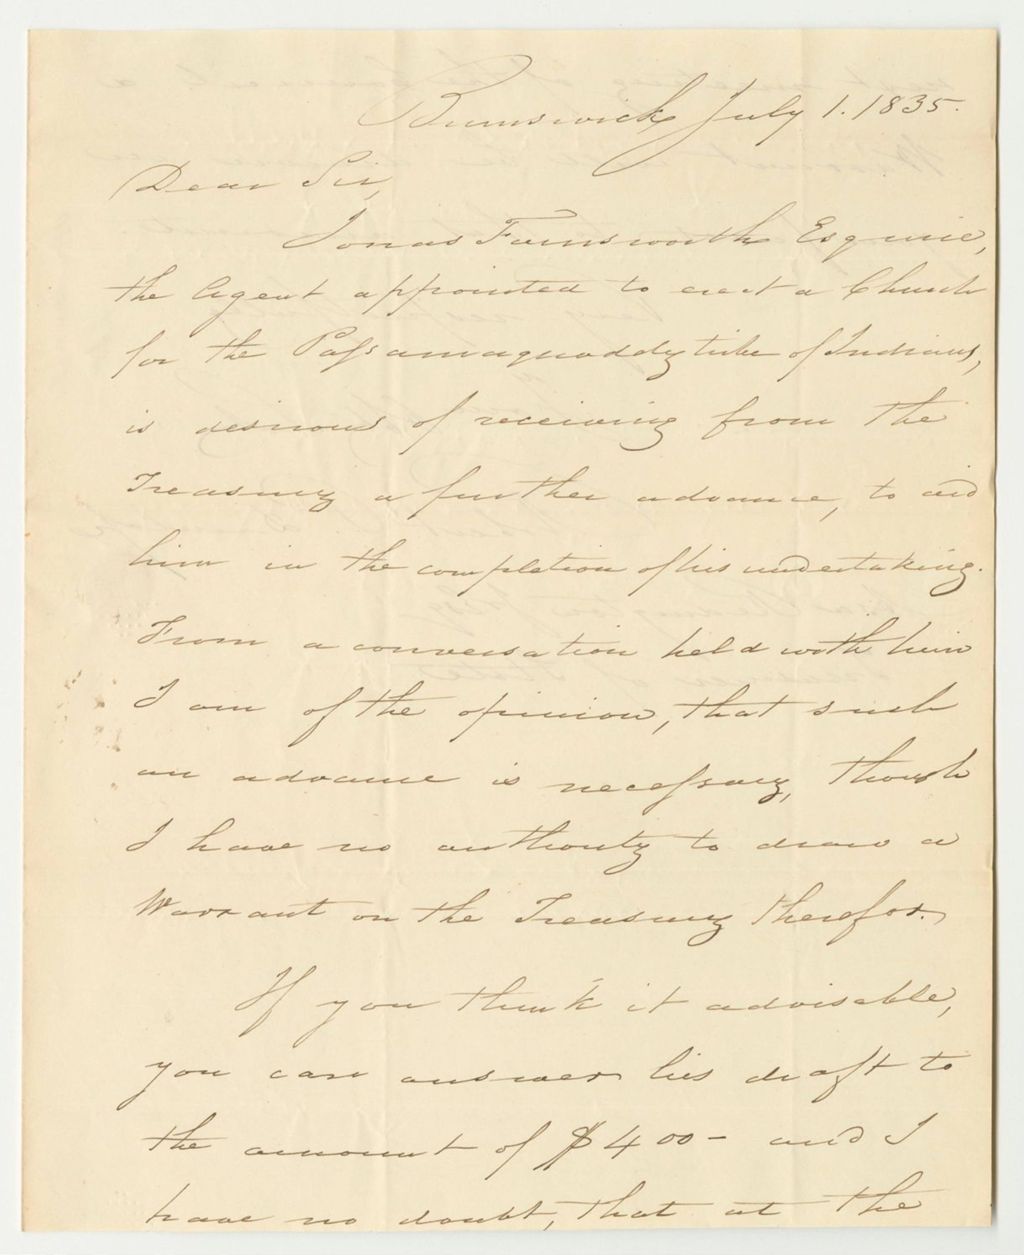 Brunswick July 1. 1835.
Dear Sir,
Jonas Farnsworth Esquire,
the Agent appointed to erect a Church
for the Passamaquoddy tribe of Indians,
is desirous of receiving from the
Treasury a further advance, to aid
him in the completion of his undertaking.
From a conversation held with him
I am of the opinion, that such
an advance is necessary, though
I have no authority to draw a
Warrant on the Treasury therefor.
If you think it advisable,
you can answer his draft to
the amount of $400- and I
have no doubt, that at the